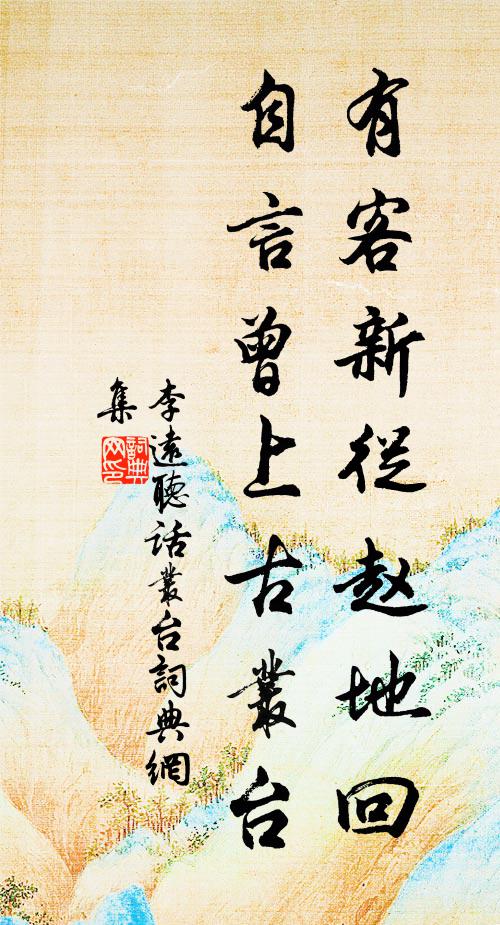 有客新從趙地回
自言曾上古叢台
李遠聽話叢台詞典網
集
詞典
网印